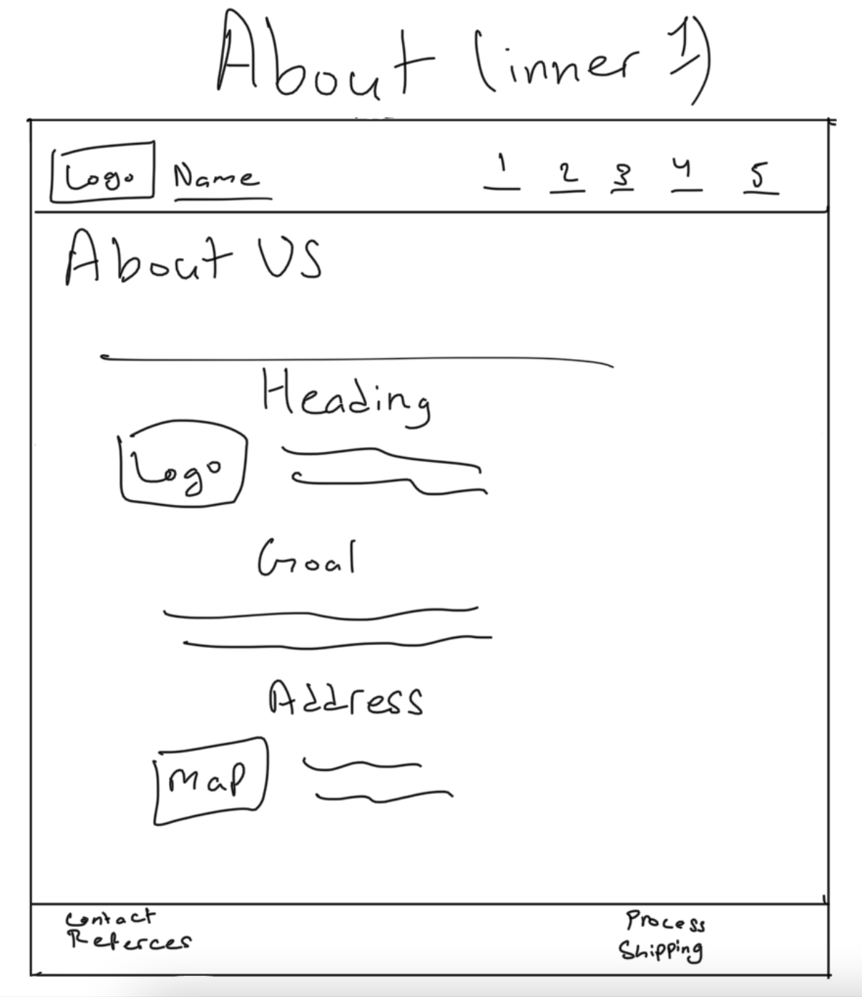 About (inner 1)
Logo Name 1 2 3 4 5
About US
Heading
Logo
Goal
Address
Map
Contact
Referces
Process
Shipping